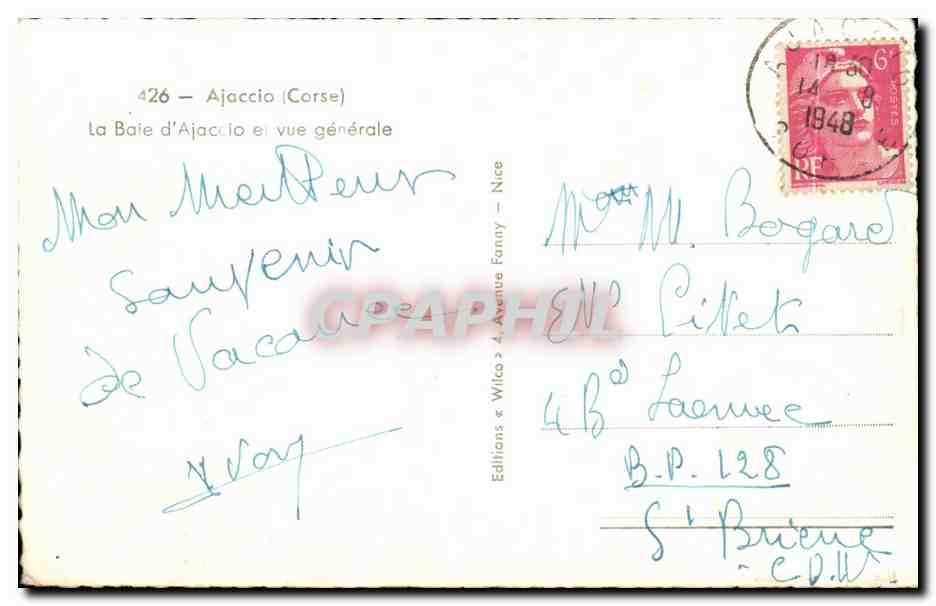 426 — Ajaccio (Corse)
La Baie d'Ajaccio et vue générale
Mon Meilleur
Souvenir
de Vacances
Editions « Wilco » 4, Avenue Fanny — Nice
CPAPHIL
6F
POSTES
RF
18 30
14 - 8
1948
M. Bogard
4 Bd Laennec
B.P. 128
St Brieuc
C.D.N.